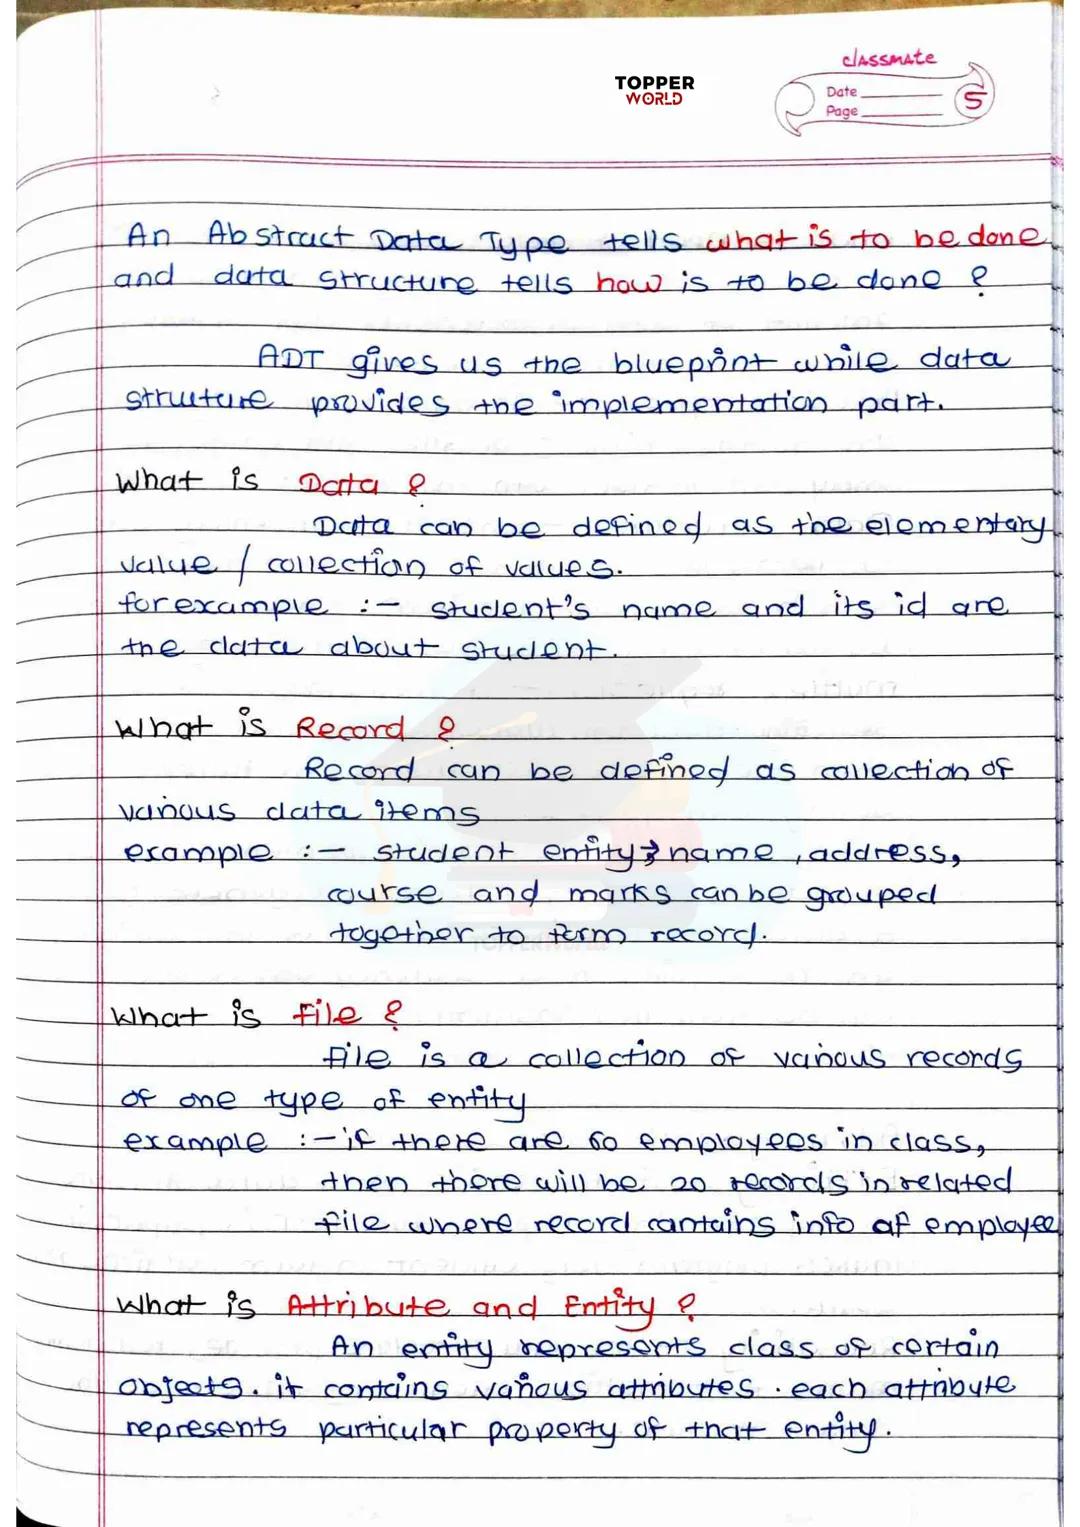 TOPPER
WORLD
classmate
Date
Page
5
An Abstract Data Type tells what is to be done
and data structure tells how is to be done ?
ADT gives us the blueprint while data
structure provides the implementation part.
What is Data ?
Data can be defined as the elementary
value / collection of values.
for example :- student's name and its id are
the data about student.
What is Record ?
Record can be defined as collection of
various data items
example :- student entity → name , address,
course and marks can be grouped
together to form record.
What is File ?
File is a collection of various records
of one type of entity
example :- if there are 60 employees in class,
then there will be 20 records in related
file where record contains info of employee
What is Attribute and Entity ?
An entity represents class of certain
objects. it contains various attributes. each attribute
represents particular property of that entity.